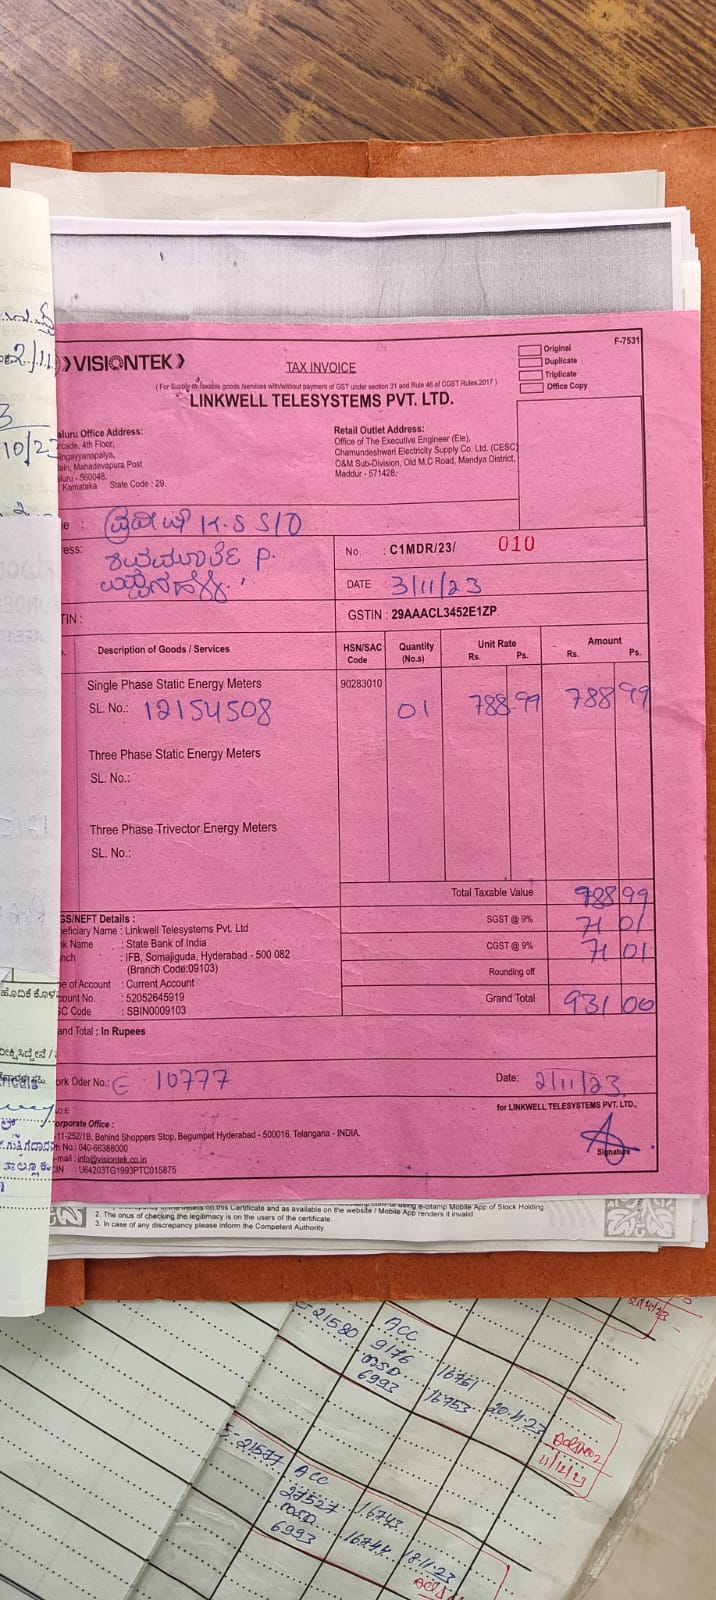 VISIONTEK
TAX INVOICE
Original
Duplicate
Triplicate
Office Copy
F-7531
( For Supply of taxable goods /services with/without payment of GST under section 31 and Rule 46 of CGST Rules,2017 )
LINKWELL TELESYSTEMS PVT. LTD.
aluru Office Address:
rcade, 4th Floor,
ingayyanapalya,
ain, Mahadevapura Post
luru - 560048.
Karnataka State Code : 29.
Retail Outlet Address:
Office of The Executive Engineer (Ele),
Chamundeshwari Electricity Supply Co. Ltd. (CESC)
O&M Sub-Division, Old M.C Road, Mandya District,
Maddur - 571428.
e : K.S S/O
ess: P.
No. : C1MDR/23/ 010
DATE : 3/11/23
TIN :
GSTIN : 29AAACL3452E1ZP
Description of Goods / Services
HSN/SAC Code
Quantity (No.s)
Unit Rate Rs. Ps.
Amount Rs. Ps.
Single Phase Static Energy Meters 90283010
SL. No.: 12154508 01 788.99 788 99
Three Phase Static Energy Meters
SL. No.:
Three Phase Trivector Energy Meters
SL. No.:
Total Taxable Value 788 99
SGST @ 9% 71 01
CGST @ 9% 71 01
Rounding off
Grand Total 931 00
GS/NEFT Details :
eficiary Name : Linkwell Telesystems Pvt. Ltd
k Name : State Bank of India
nch : IFB, Somajiguda, Hyderabad - 500 082
(Branch Code:09103)
e of Account : Current Account
ount No. : 52052645919
SC Code : SBIN0009103
and Total : In Rupees
ork Oder No.: E 10777
Date: 2/11/23
for LINKWELL TELESYSTEMS PVT. LTD.,
Signature
orporate Office :
11-252/1B, Behind Shoppers Stop, Begumpet Hyderabad - 500016, Telangana - INDIA.
h No.: 040-66388000
-mail : info@visiontek.co.in
IN : U64203TG1993PTC015875
2. The onus of checking the legitimacy is on the users of the certificate.
3. In case of any discrepancy please inform the Competent Authority.
21580 ACC
9176 16761
MSD
6993 16753 20.11.23
21577 ACC
27527 16743
MSD
6993 16744 18.11.23
11/12/23